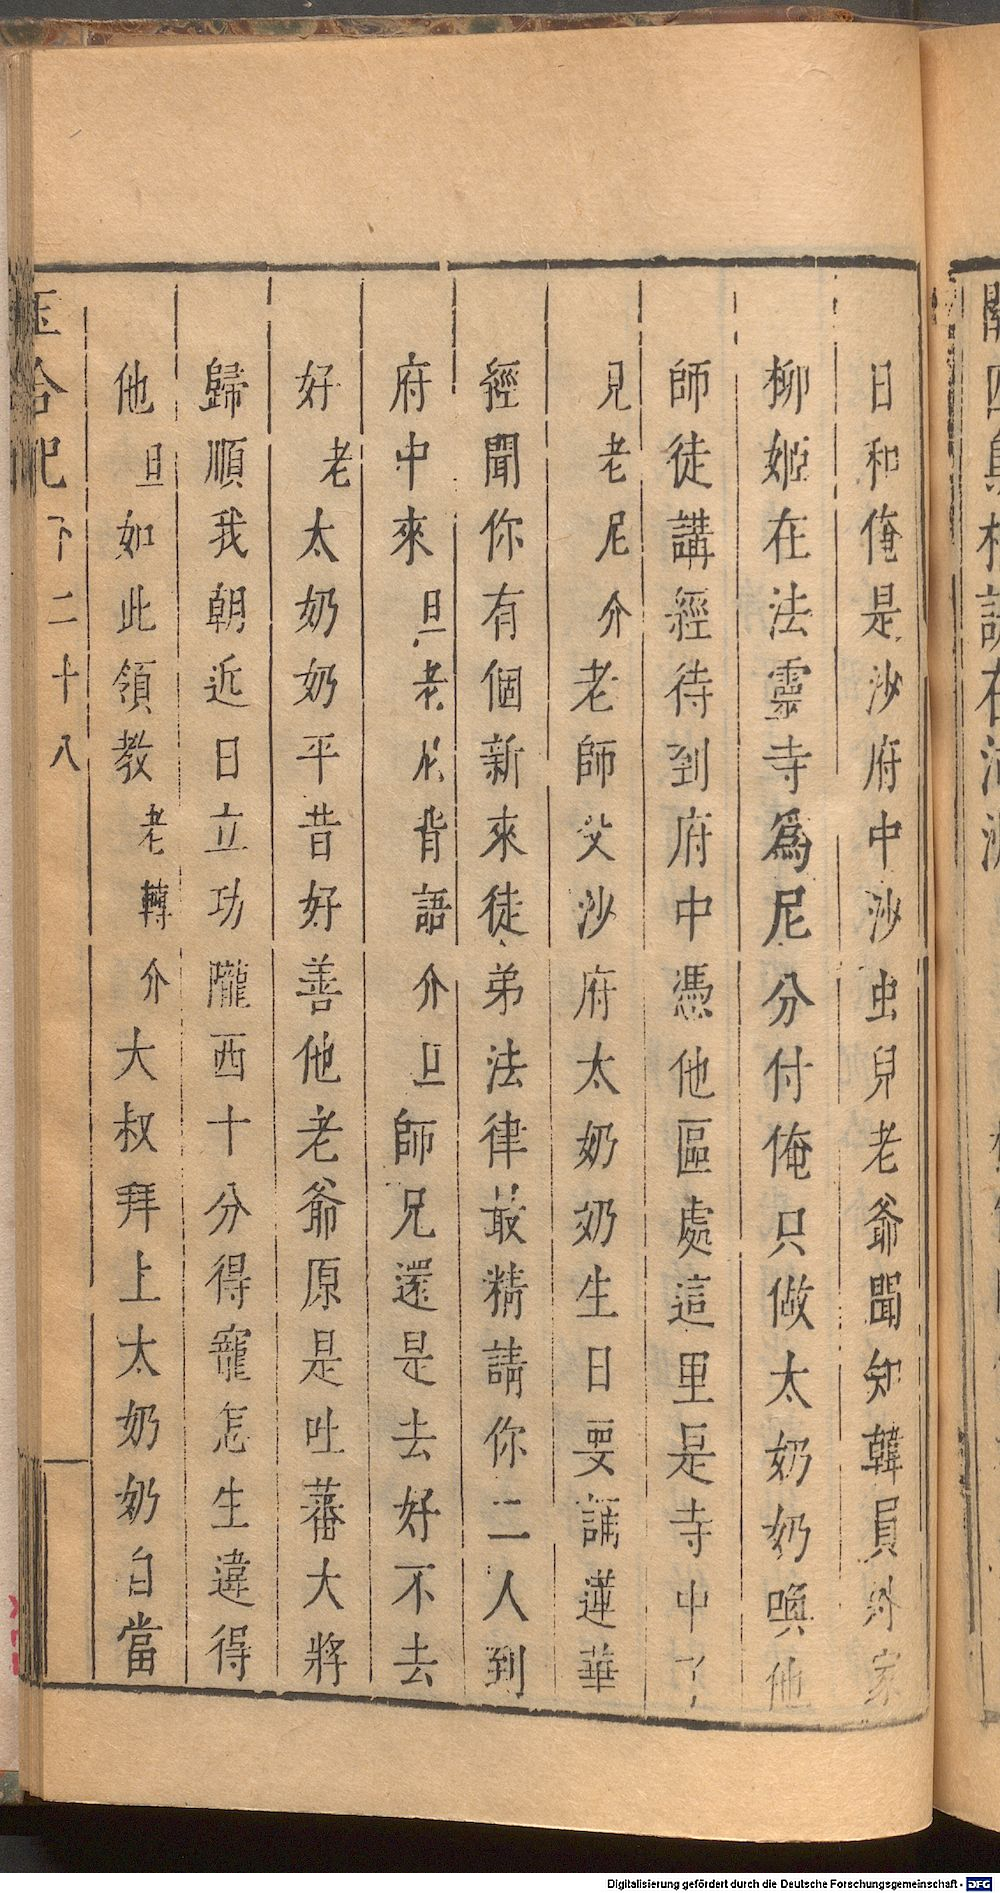 日和俺是沙府中沙虫兒老爺聞知韓員外家
柳姬在法靈寺爲尼分付俺只做太奶奶喚他
師徒講經待到府中憑他區處這里是寺中了
見老尼介老師父沙府太奶奶生日要誦蓮華
經聞你有個新來徒弟法律最精請你二人到
府中來旦老尼背語介旦師兄還是去好不去
好老太奶奶平昔好善他老爺原是吐蕃大將
歸順我朝近日立功隴西十分得寵怎生違得
他旦如此領教老轉介大叔拜上太奶奶自當
玉合記 下二十八
Digitalisierung gefördert durch die Deutsche Forschungsgemeinschaft - DFG